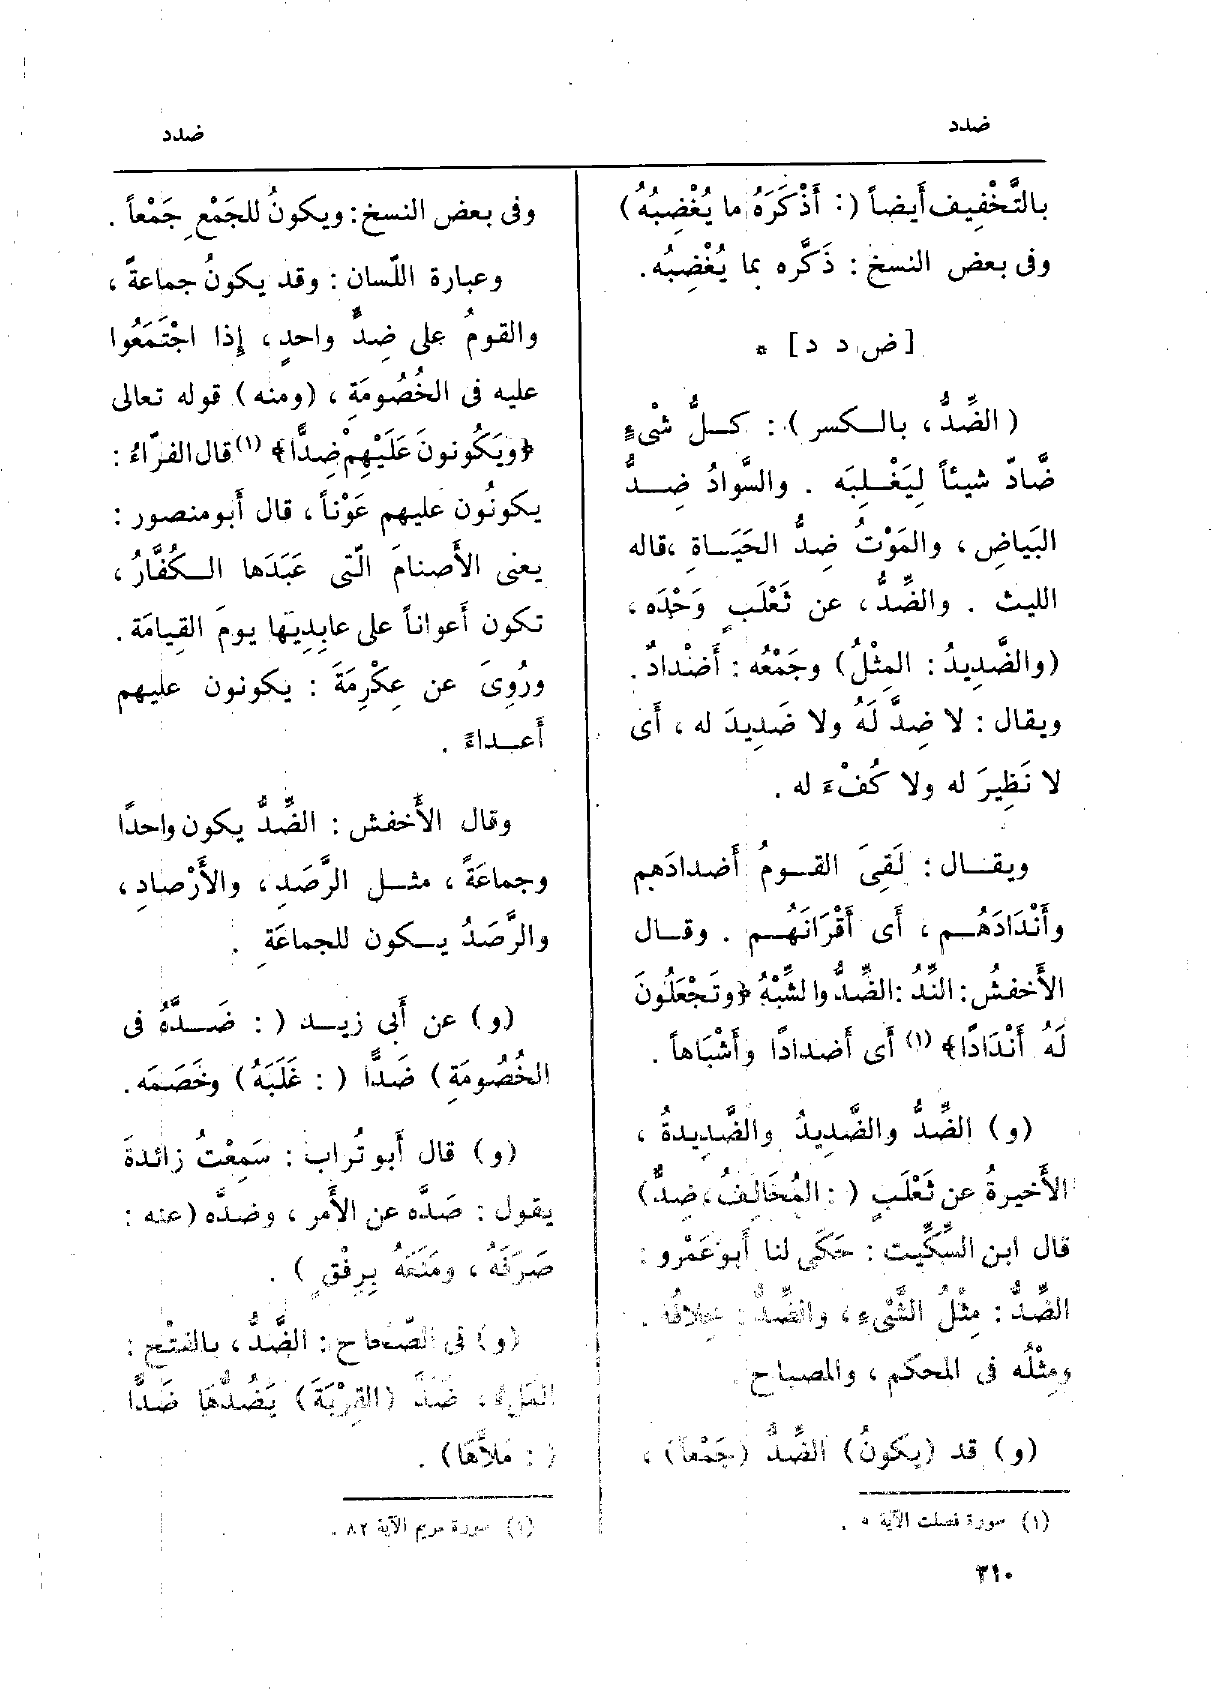 ضدد
ضدد
بالتَّخْفِيف أَيضاً (: أَذْكَرَهُ ما يُغْضِبُهُ)
وفى بعض النسخ : ذَكَّره بما يُغْضِبُه.
[ ض د د ] *
( الضِّدُّ ، بالكسر ) : كلُّ شْىءٍ
ضَّادّ شيئاً لِيَغْلِبَه . والسَّوادُ ضِدُّ
البَياضِ ، والمَوْتُ ضِدُّ الحَيَاةِ ،قاله
الليث . والضِّدُّ ، عن ثَعْلَبٍ وَحْدَه ،
(والضَّدِيدُ : المِثْلُ) وجَمْعُه : أَضْدادٌ.
ويقال : لا ضِدَّ لَهُ ولا ضَدِيدَ له ، أَى
لا نَظِيرَ له ولا كُفْءَ له .
ويقال : لَقِىَ القومُ أَضدادَهم
وأَنْدَادَهُم ، أَى أَقْرَانَهُم . وقال
الأَخفشُ : النِّدُّ :الضِّدُّ والشِّبْهُ ﴿وتَجْعَلُونَ
لَهُ أَنْدَادًا﴾ (١) أَى أَضدادًا وأَشْبَاهاً .
(و) الضِّدُّ والضَّدِيدُ والضَّدِيدةُ ،
الأَخيرةُ عن ثَعْلَبٍ ( : المُخَالِفُ ، ضِدٌّ)
قال ابن السِّكِّيت : حَكَى لنا أَبوعَمْرو :
الضِّدُّ : مِثْلُ الشَّىْءِ ، والضِّدُّ : خِلافُه .
ومِثْلُه فى المحكم ، والمصباح .
(و) قد (يكونُ) الضِّدُّ (جَمْعاً) ،
(١) سورة فصلت الآية ٩ .
٣١٠
وفى بعض النسخ : ويكونُ للجَمْعِ جَمْعاً .
وعبارة اللّسان : وقد يكونُ جماعةً ،
والقومُ على ضِدٍّ واحدٍ ، إِذا اجْتَمَعُوا
عليه فى الخُصُومَةِ ، (ومنه) قوله تعالى
﴿ويَكُونونَ عَلَيْهِمْ ضِدًّا﴾ (١) قال الفرّاءُ :
يكونُون عليهم عَوْناً ، قال أَبومنصور :
يعنى الأَصنامَ الّتى عَبَدَها الكُفَّارُ ،
تكون أَعواناً على عابِدِيها يومَ القِيامَة .
ورُوِىَ عن عِكْرِمَةَ : يكونون عليهم
أَعداءً .
وقال الأَخفش : الضِّدُّ يكون واحدًا
وجماعَةً ، مثل الرَّصَدِ ، والأَرْصادِ ،
والرَّصَدُ يكون للجماعَةِ .
(و) عن أَبى زيد ( : ضَدَّهُ فى
الخُصُومَةِ) ضَدًّا ( : غَلَبَهُ) وخَصَمَه.
(و) قال أَبو تُراب : سَمِعْتُ زائدةَ
يقول : صَدَّه عن الأَمر ، وضدَّه (عنه :
صَرَفَهُ ، ومَنَعَهُ بِرِفْقٍ ) .
(و) فى الصّحاح : الضَّدُّ ، بالفتْح :
المَلْءُ ، ضَدَّ (القِرْبَةَ) يَضُدُّهَا ضَدًّا
( : مَلأَّهَا) .
(١) سورة مريم الآية ٨٢ .